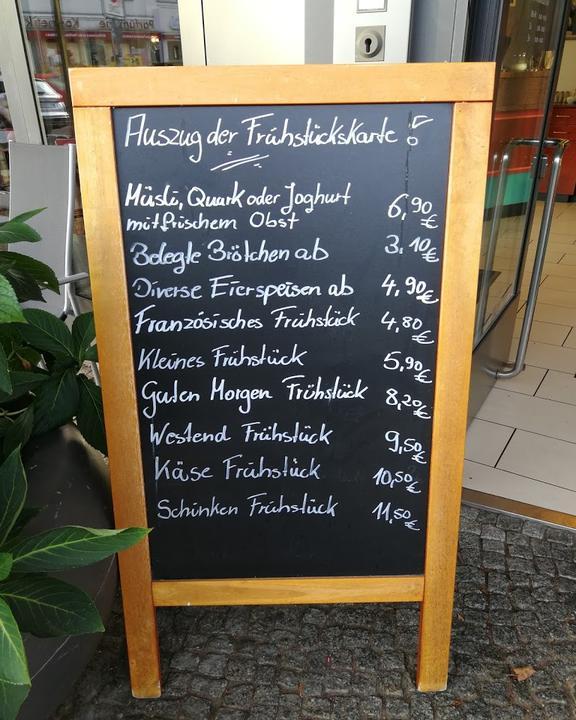 Auszug der Frühstückskarte :
Müsli, Quark oder Joghurt
mit frischem Obst 6,90 €
Belegte Brötchen ab 3,10 €
Diverse Eierspeisen ab 4,90 €
Französisches Frühstück 4,80 €
Kleines Frühstück 5,90 €
Guten Morgen Frühstück 8,20 €
Westend Frühstück 9,50 €
Käse Frühstück 10,50 €
Schinken Frühstück 11,50 €